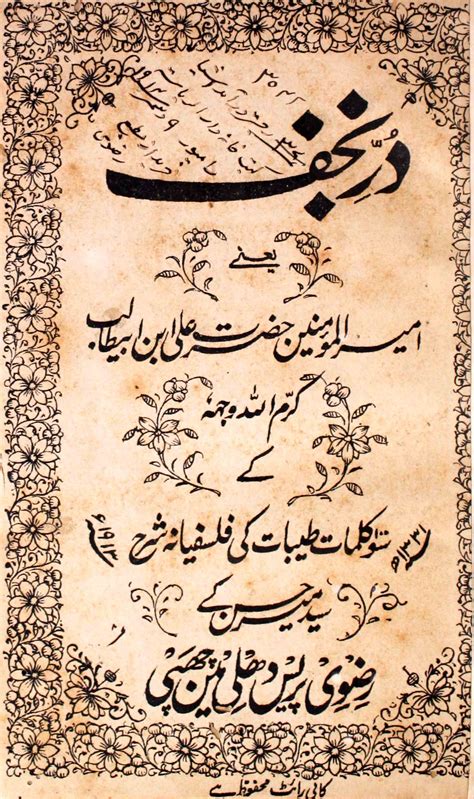 ۳۵۴۲
دُرِّ نجف
یعنے
امیر المومنین حضرت علی ابن ابیطالب
کرّم اللہ وجہہ
کے
۱۳۳۱ھ سَو کلمات طیبات کی فلسفیانہ شرح ۱۹۱۳ء
سید میر حسن کے
رضوی پریس دھلی مین چھپی
کاپی رائٹ محفوظ ہے